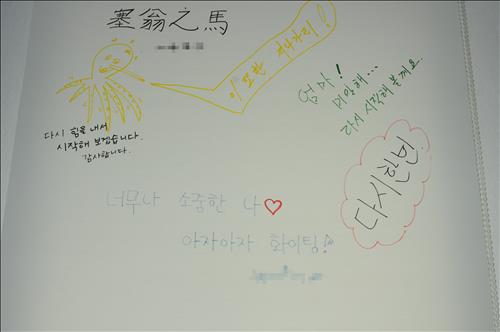 塞翁之馬
이 또한 지나가리!
엄마!
미안해...
다시 시작해 볼게요.
다시 힘을 내서
시작해 보겠습니다.
감사합니다.
다시한번
너무나 소중한 나♡
아자아자 화이팅!